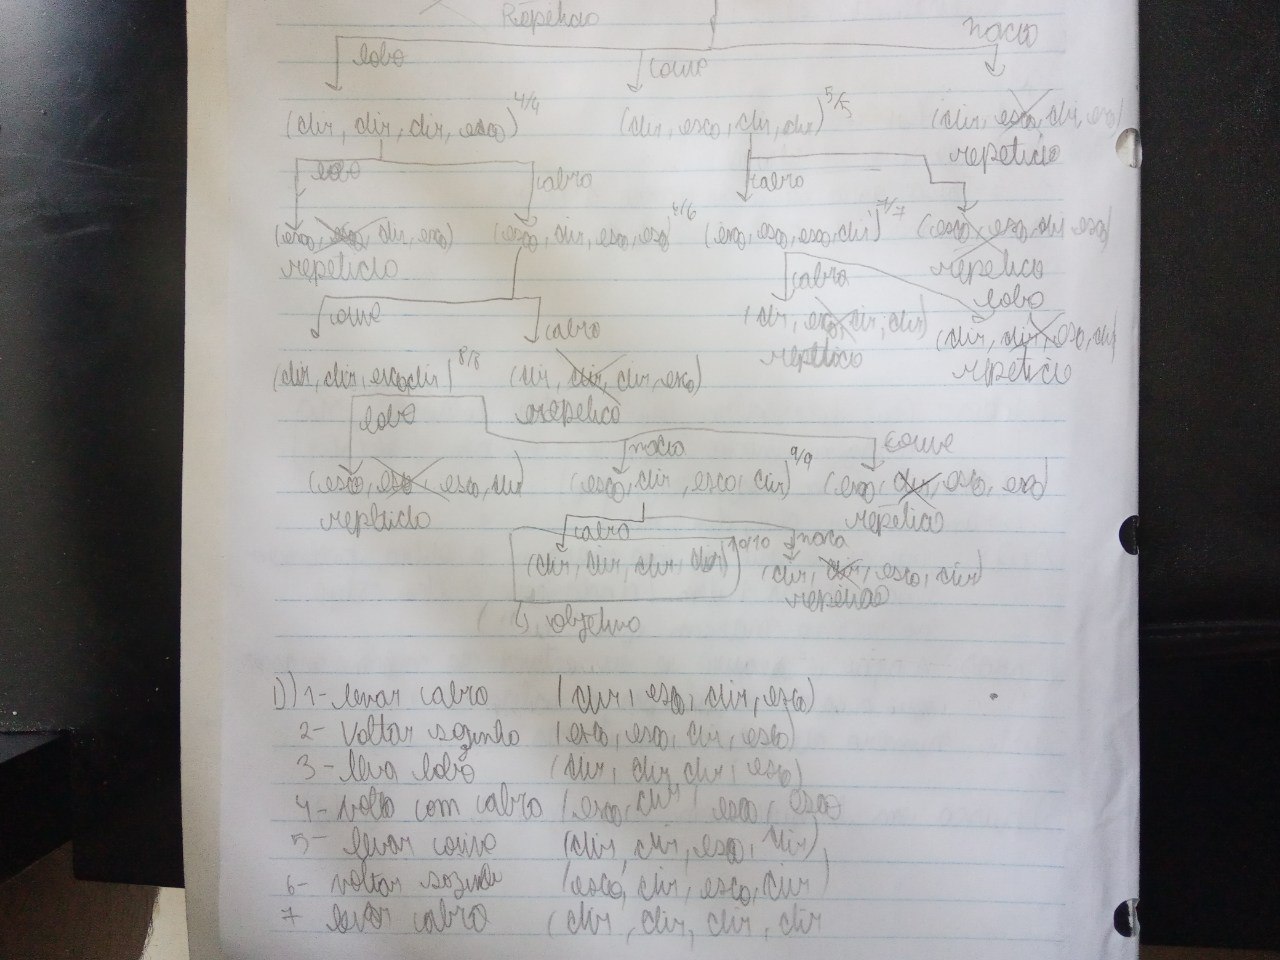 Repetido
lobo couve nada
(dir, dir, dir, esq) 4/4 (dir, esq, dir, dir) 5/5 (dir, esq, dir, esq)
repetido
lobo cabra cabra
(esq, esq, dir, esq) (esq, dir, esq, esq) 6/6 (esq, esq, esq, dir) 7/7 (esq, esq, dir, esq)
repetido repetido
couve cabra cabra lobo
(dir, esq, dir, dir) (dir, dir, esq, dir)
repetido repetido
(dir, dir, esq, dir) 8/8 (dir, dir, dir, esq)
repetido
lobo nada couve
(esq, esq, esq, dir) (esq, dir, esq, dir) 9/9 (esq, dir, esq, esq)
repetido repetido
cabra nada
(dir, dir, dir, dir) 10/10 (dir, dir, esq, dir)
repetido
objetivo
D) 1- levar cabra (dir, esq, dir, esq)
2- Voltar sozinho (esq, esq, dir, esq)
3- leva lobo (dir, dir, dir, esq)
4- volta com cabra (esq, dir, esq, esq
5- levar couve (dir, dir, esq, dir)
6- voltar sozinho (esq, dir, esq, dir)
7 levar cabra (dir, dir, dir, dir